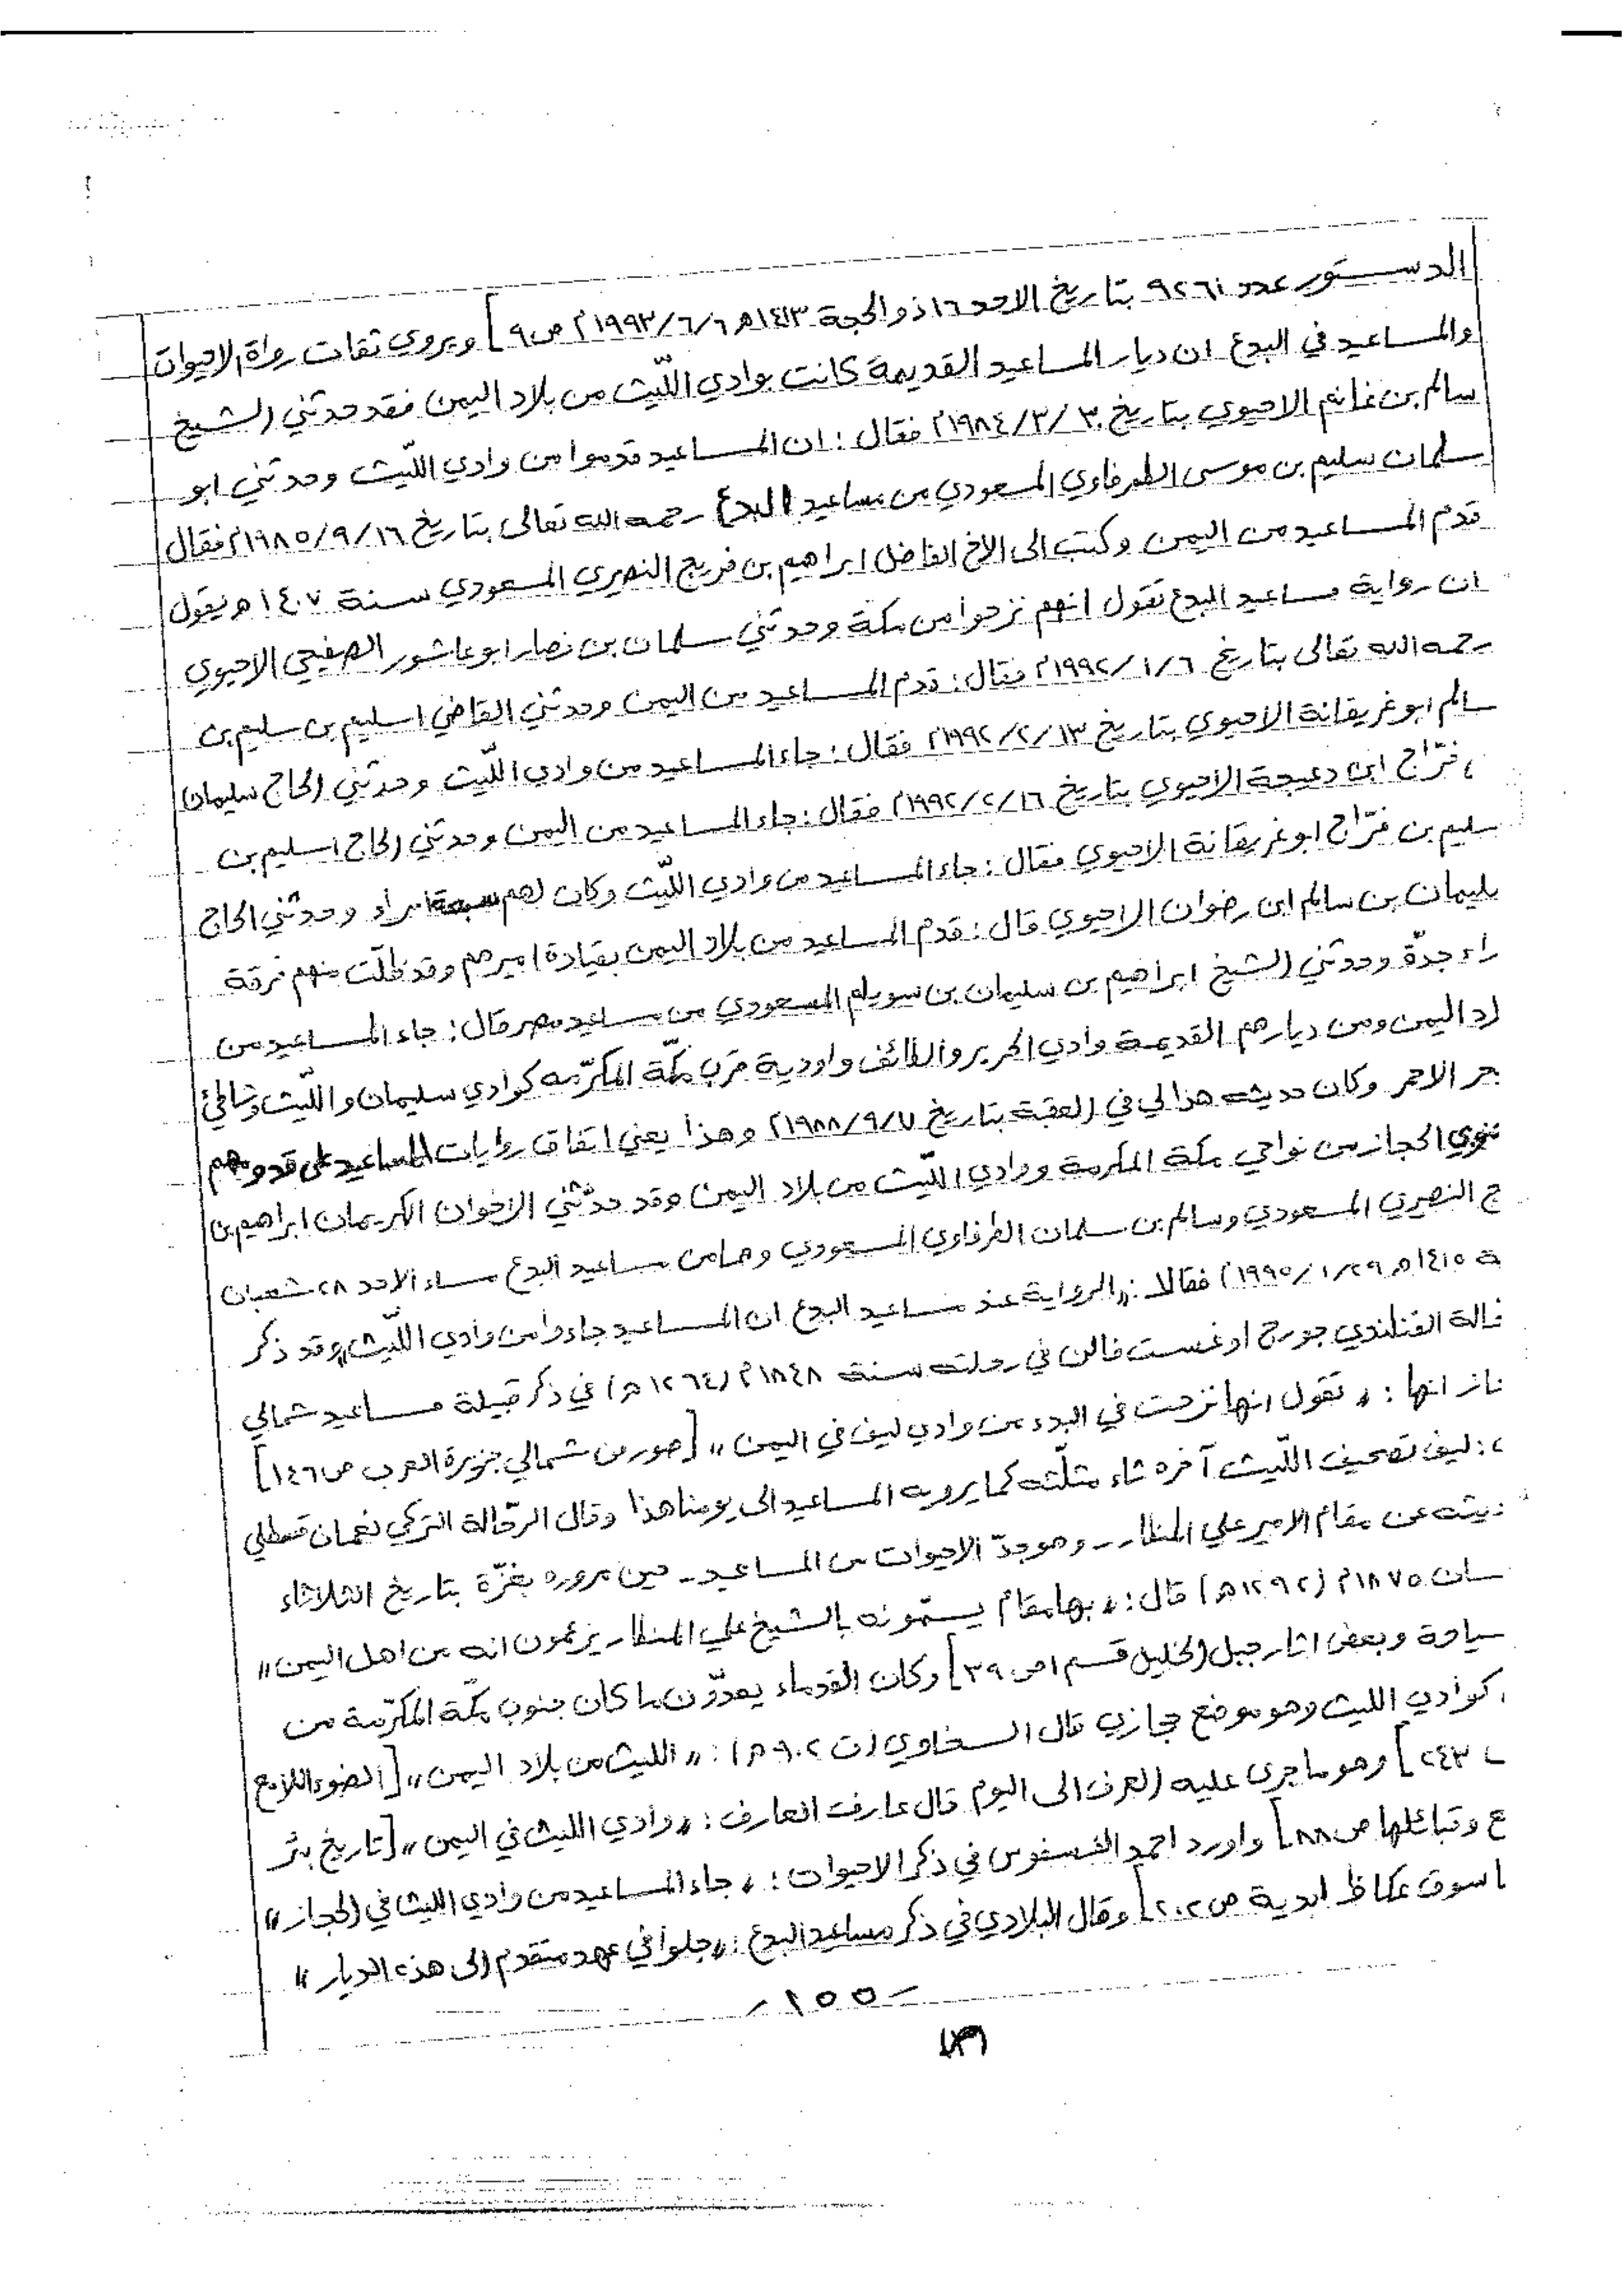 الدستور عدد ٩٢٦١ بتاريخ الاحد ١٦ ذو الحجة ١٤١٣هـ ١٩٩٣/٦/٦م ص٩] ويروي ثقات رواة الاحيوات
والمساعيد في البدع ان ديار المساعيد القديمة كانت بوادي اللّيث من بلاد اليمن فقد حدثني الشيخ
سالم بن غانم الاحيوي بتاريخ ١٩٨٤/٣/٣٠م فقال : ان المساعيد قدموا من وادي اللّيث وحدثني ابو
سلمان سليم بن موسى الطرفاوي المسعودي من مساعيد البدع رحمه الله تعالى بتاريخ ١٩٨٥/٩/١٦م فقال
قدم المساعيد من اليمن وكتب الى الأخ الفاضل ابراهيم بن فريج النصيري المسعودي سنة ١٤٠٧هـ يقول
ان رواية مساعيد البدع تقول انهم نزحوا من مكة وحدثني سلمان بن نصار ابو عاشور الصفيحي الاحيوي
رحمه الله تعالى بتاريخ ١٩٩٢/١/٦م فقال : قدم المساعيد من اليمن وحدثني القاضي اسليم بن سليم بن
سالم ابو غريقانة الاحيوي بتاريخ ١٩٩٢/٢/١٣م فقال : جاء المساعيد من وادي اللّيث وحدثني الحاج سليمان
فرّاج ابن دعيجة الاحيوي بتاريخ ١٩٩٢/٢/١٦م فقال : جاء المساعيد من اليمن وحدثني الحاج اسليم بن
سليم بن فرّاج ابو غريقانة الاحيوي فقال : جاء المساعيد من وادي اللّيث وكان لهم سبعة امراء وحدثني الحاج
ليمان بن سالم ابن رضوان الاحيوي قال : قدم المساعيد من بلاد اليمن بقيادة اميرهم وقد ظلّت منهم فرقة
راء جدّة وحدثني الشيخ ابراهيم بن سليمان بن سويلم المسعودي من مساعيد مصر قال : جاء المساعيد من
لاد اليمن ومن ديارهم القديمة وادي الحرير والطائف واودية قرب مكّة المكرّمه كوادي سليمان واللّيث وشاطئ
بحر الاحمر وكان حديثه هذا لي في العقبة بتاريخ ١٩٨٨/٩/٧م وهذا يعني اتفاق روايات المساعيد على قدومهم
نوبي الحجاز من نواحي مكة المكرمة ووادي اللّيث من بلاد اليمن وقد حدّثني الاخوان الكريمان ابراهيم بن
ج النصيري المسعودي وسالم بن سلمان الطرفاوي المسعودي وهما من مساعيد البدع مساء الاحد ٢٨ شعبان
ة ١٤١٥هـ ١٩٩٥/١/٢٩م فقالا : «الرواية عند مساعيد البدع ان المساعيد جاءوا من وادي اللّيث» وقد ذكر
حالة الفنلندي جورج اوغست فالن في رحلته سنة ١٨٤٨م (١٢٦٤هـ) في ذكر قبيلة مساعيد شمالي
جاز انها : «تقول انها نزحت في البدء من وادي ليف في اليمن» [صور من شمالي جزيرة العرب ص١٤٦]
: ليف تصحيف اللّيث آخره ثاء مثلّثه كما يرويه المساعيد الى يومنا هذا وقال الرحّالة التركي نعمان قسطلي
ديثه عن مقام الامير علي المنطار ـ وهو جدّ الاحيوات من المساعيد ـ حين مروره بغزّة بتاريخ الثلاثاء
سان ١٨٧٥م (١٢٩٢هـ) قال : «بها مقام يسمّونه بالشيخ علي المنطار يزعمون انه من اهل اليمن»
سياحة وبعض اثار جبل الخليل قسم ١ ص٣٩] وكان القدماء يعدّون ما كان جنوب مكّة المكرّمة من
كوادي الليث وهو موضع حجازي قال السخاوي (ت ٩٠٢هـ) : «الليث من بلاد اليمن» [الضوء اللامع
٢٤٣] وهو ما جرى عليه العرف الى اليوم قال عارف العارف : «وادي الليث في اليمن» [تاريخ بئر
ع وقبائلها ص٨٨] واورد احمد القسفوس في ذكر الاحيوات : «جاء المساعيد من وادي الليث في الحجاز»
ا سوق عكاظ ابدية ص٢٠٢] وقال البلادي في ذكر مساعيد البدع : «جلوا في عهد متقدم الى هذه الديار»
ـ ١٥٥ ـ